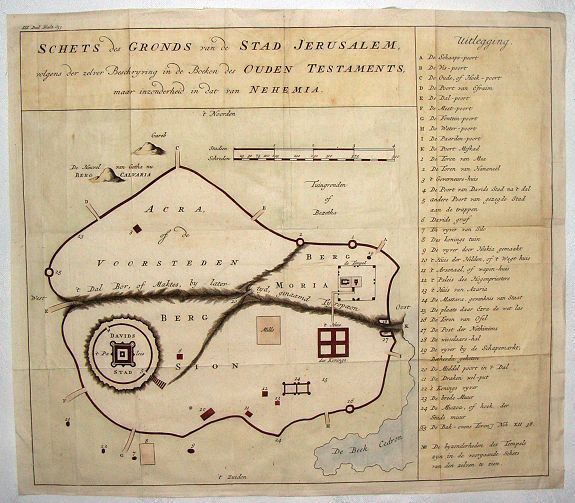 SCHETS des GRONDS van de STAD JERUSALEM,
volgens der zelver Beschryving in de Boeken des OUDEN TESTAMENTS,
maar inzonderheid in dat van NEHEMIA.
't Noorden
Gareb
De Heuvel van Gotha nu
BERG CALVARIA
Stadien
Schreden
Tuingronden
of
Bezetha
ACRA,
of de
VOORSTEDEN
BERG
de Tempel
MORIA
't Dal Bor, of Maktes, by later tyd genaamd Tyropæon
West
Oost
BERG
SION
DAVIDS
STAD
Millo
't Huis
des Konings
De Beek Cedron
't Zuiden
Uitlegging.
A De Schaaps-poort
B De Vis-poort
C De Oude, of Hoek-poort
D De Poort van Efraim
E De Dal-poort
F De Mest-poort
G De Fontein-poort
H De Water-poort
I De Paarden-poort
K De Poort Mifkad
1 De Toren van Mea
2 De Toren van Hananeël
3 't Gouverneurs-huis
4 De Poort van Davids Stad na 't dal
5 andere Poort van gezegde Stad
aan de trappen
6 Davids graf
7 De vyver van Silo
8 Des konings tuin
9 De vyver door Hiskia gemaakt
10 't Huis der Helden, of 't Wagt-huis
11 't Arsenaal, of wapen-huis
12 't Paleis des Hogenpriesters
13 't Huis van Azaria
15 De plaats daar Ezra de wet las
16 De Toren van Ofel
17 De Post der Nethinims
18 De wisselaars-hal
19 De vyver by de Schaapsmarkt,
20 De Middel poort in 't Dal
21 De Draken wel-put
22 's Konings vyver
23 De brede Muur
24 De Miczoa, of hoek der
Stads muur
25 De Bak-ovens Toren
De byzonderheden des Tempels
zyn in de voorgaande Schets
van den zelven te zien.